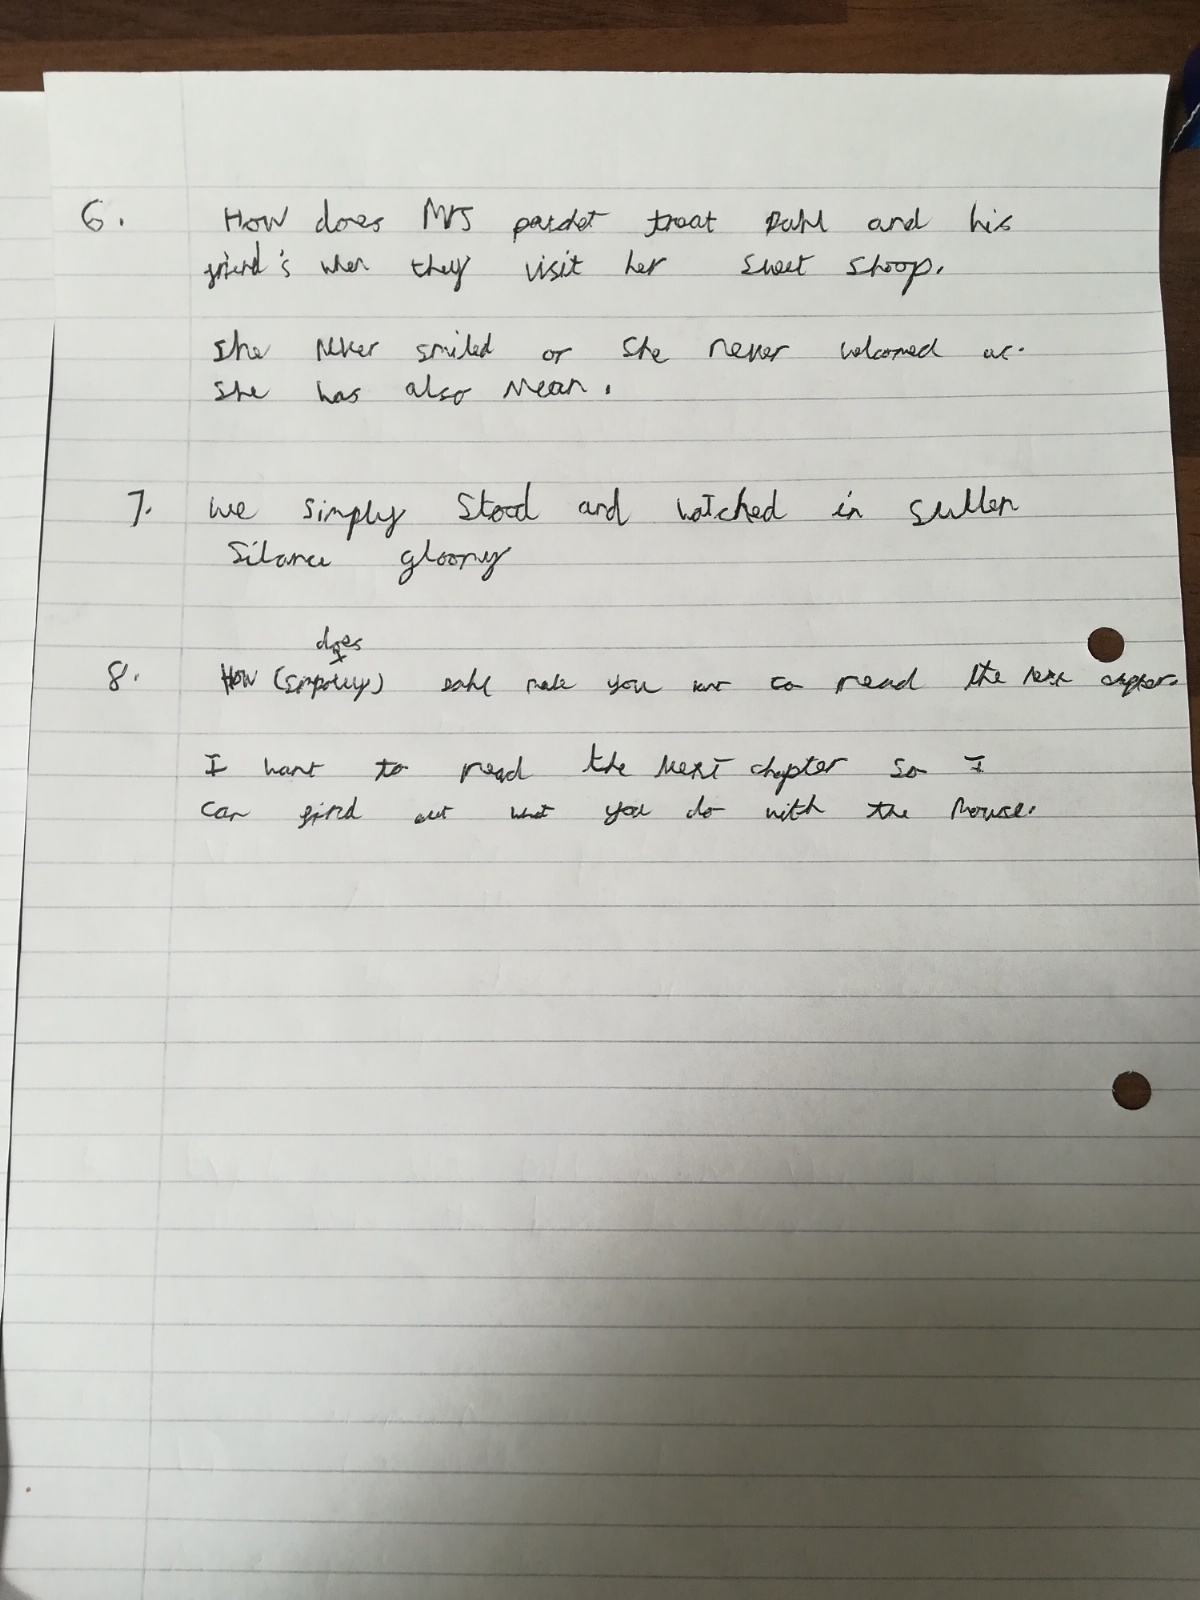 6. How does Mrs patchet treat Dahl and his
friend's when they visit her sweet shoop.
She never smiled or she never welcomed us.
She has also mean.
7. we simply stood and watched in sullen
Silance gloomy
does
8. How dahl make you want to read the next
I want to read the next chapter so I
can find out what you do with the mouse.